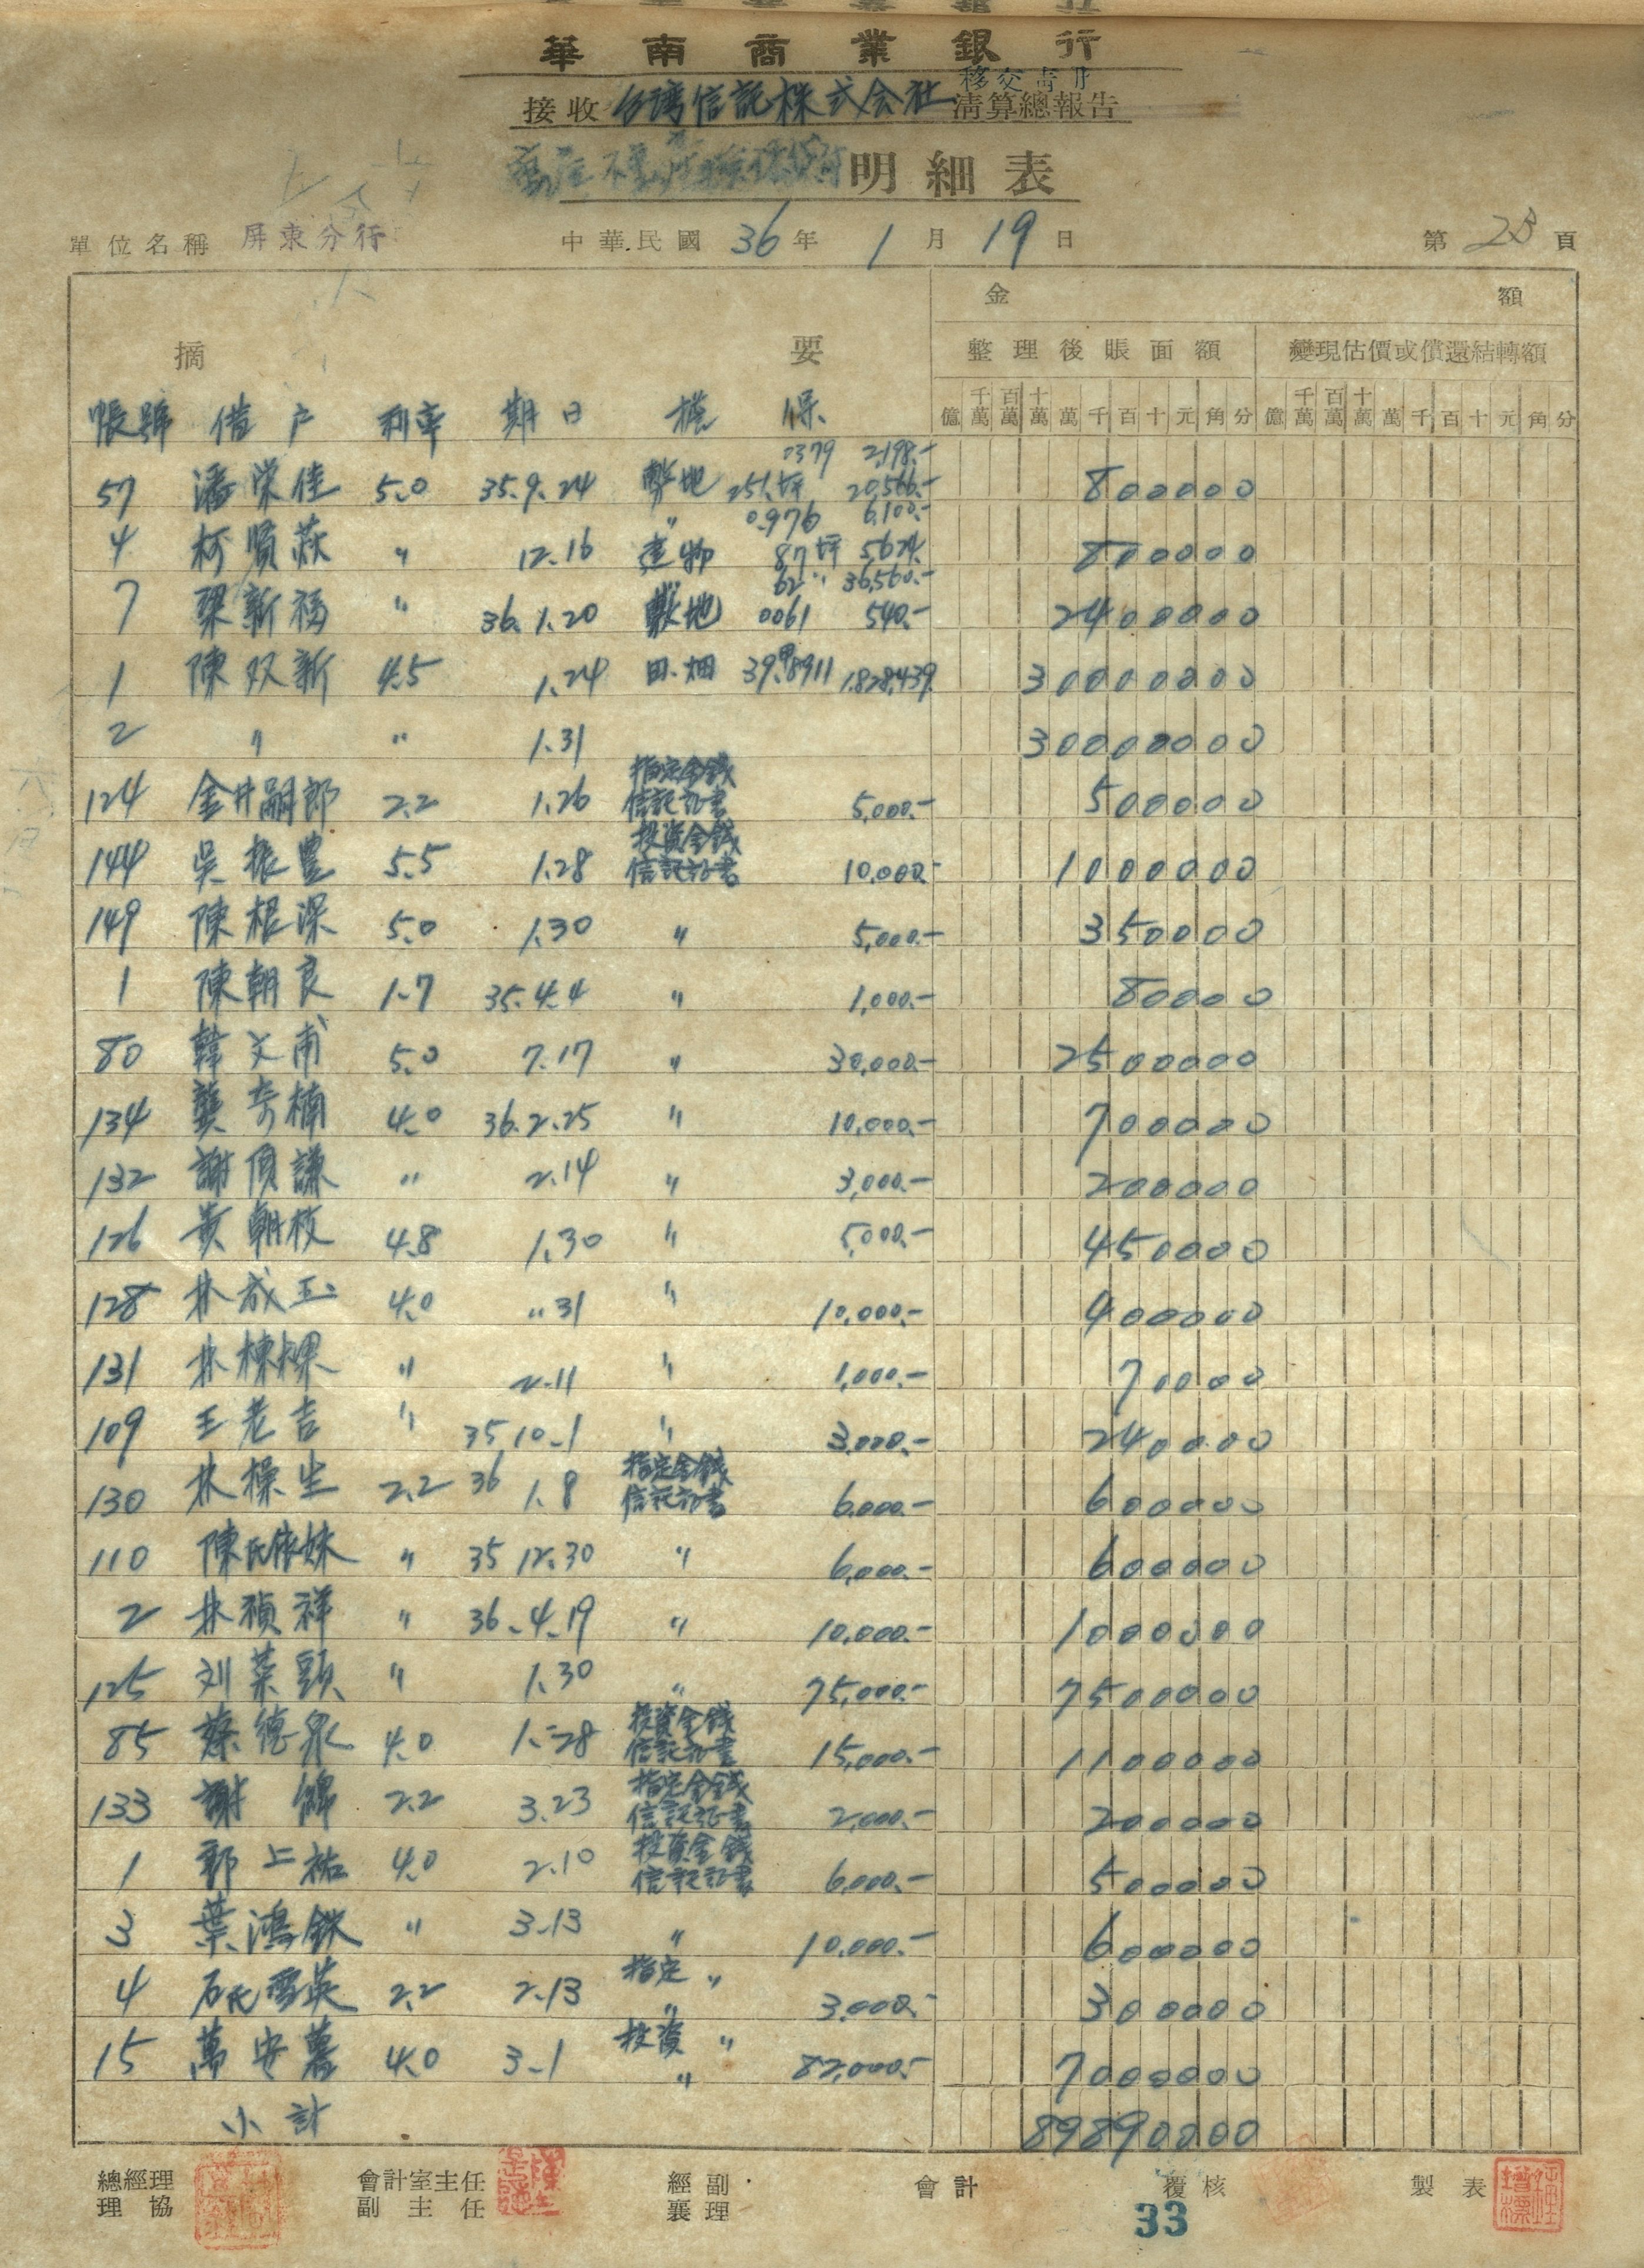 華南商業銀行
移交清冊
接收 台湾信託株式会社 清算總報告
明細表
單位名稱 屏東分行 中華民國 36 年 1 月 19 日 第 23 頁
摘要 金額
整理後賬面額 變現估價或償還結轉額
億 千萬 百萬 十萬 萬 千 百 十 元 角 分 億 千萬 百萬 十萬 萬 千 百 十 元 角 分
帳號 借户 利率 期日 擔保
0379 2,198.-
57 潘荣佳 5.0 35.9.24 敷地 251.坪 20,566.- 800000
〃 0.976 6,100.-
4 柯賢 〃 12.16 建物 87坪 5624. 800000
62〃 36,560.-
7 梁新福 〃 36.1.20 敷地 0061 540.- 2400000
1 陳双新 4.5 1.24 田.畑 39甲8911 1,828,439. 30000000
2 〃 〃 1.31 30000000
指定金錢
124 金井嗣郎 2.2 1.26 信託証書 5,000.- 500000
投資金錢
144 吳振豊 5.5 1.28 信託証書 10,000.- 1000000
149 陳根深 5.0 1.30 〃 5,000.- 350000
1 陳朝良 1.7 35.4.4 〃 1,000.- 80000
80 韓文甫 5.0 7.17 〃 30,000.- 2500000
134 龔奇楠 4.0 36.2.25 〃 10,000.- 700000
132 謝順謙 〃 2.14 〃 3,000.- 200000
126 黄朝枝 4.8 1.30 〃 5,000.- 450000
128 林成玉 4.0 〃31 〃 10,000.- 400000
131 林棟 〃 2.11 〃 1,000.- 70000
109 王老吉 〃 35 10.1 〃 3,000.- 240000
指定金錢
130 林操生 2.2 36 1.8 信託証書 6,000.- 600000
110 陳氏依妹 〃 35 12.30 〃 6,000.- 600000
2 林禎祥 〃 36.4.19 〃 10,000.- 1000000
125 刘菜頭 〃 1.30 〃 75,000.- 7500000
投資金錢
85 蔡德泉 4.0 1.28 信託証書 15,000.- 1100000
指定金錢
133 謝 綿 2.2 3.23 信託証書 2,000.- 200000
投資金錢
1 郭上祐 4.0 2.10 信託証書 6,000.- 500000
3 葉鴻 〃 3.13 〃 10,000.- 600000
指定 〃
4 石氏雪英 2.2 2.13 〃 3,000.- 300000
投資 〃
15 萬安 4.0 3.1 〃 82,000.- 7000000
小計 89890000
總經理 會計室主任 經副 會計 覆核 製表
理協 副主任 襄理
33